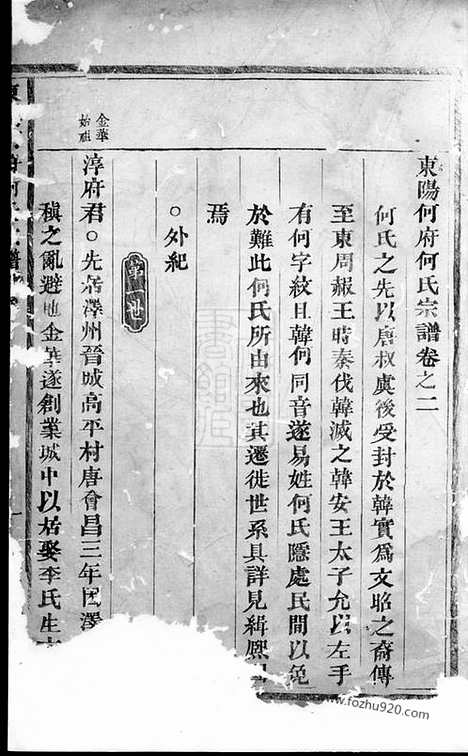 東陽何府何氏宗譜卷之二
何氏之先以唐叔虞後受封於韓實爲文昭之裔傳
至東周赧王時秦伐韓滅之韓安王太子允以左手
有何字紋且韓何同音遂易姓何氏隱處民間以免
於難此何氏所由來也其遷徙世系具詳見緝熙
焉
○外紀
第世
金華
始祖
淳府君○先居澤州晉城高平村唐會昌三年因澤
稹之亂避地金華遂創業城中以居娶李氏生
www.fozhu920.com